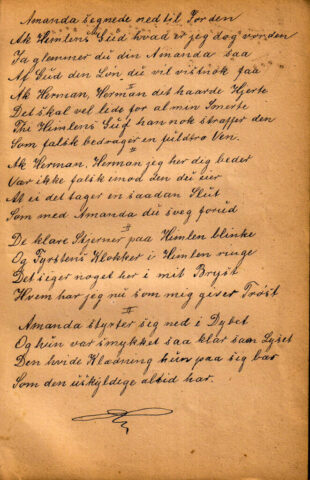 Amanda segnede ned til Jorden
Ak Himlens Gud hvad er jeg dog vorden
Ja glemmer du din Amanda saa
Af Gud den Løn du vil vistnok faa
Ak Herman, Herman det haarde Hjerte
Det skal vel lede for al min Smerte
Thi Himlens Gud han nok straffer den
Som falsk bedrager en fuldtro Ven.
Ak Herman, Herman jeg her dig beder
Var ikke falsk imod den du eier
At ei det tager en saadan Slut
Som med Amanda du sveg forud
De klare Stjerner paa Himlen blinke
Og Fyrstens Klokker i Himlen ringe
Det siger noget her i mit Bryst
Hvem har jeg nu som mig giver Trøst
Amanda styrter seg ned i Dybet
Og hun var smykket saa klar som Lyset
Den hvide Klædning hun paa sig bar
Som den uskyldige altid har.